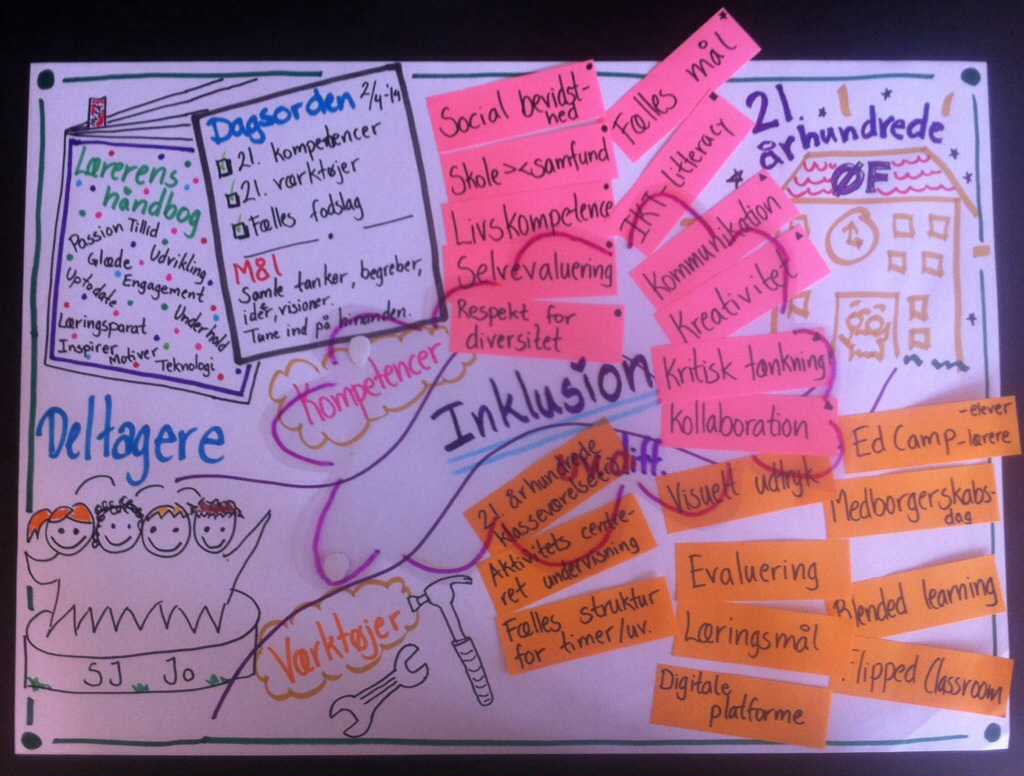 Lærerens
håndbog
Passion Tillid
Glæde Udvikling
Uptodate Engagement
Læringsparat Underhold
Inspirer Motiver Teknologi
Dagsorden 2/4-'14
21. kompetencer
21. værktøjer
Fælles fodslag
Mål
Samle tanker, begreber,
idér, visioner.
Tune ind på hinanden.
Social bevidst-
hed
Skole><samfund
Livskompetence
Selvevaluering
Respekt for
diversitet
Fælles mål
IKT litteracy
Kommunikation
Kreativitet
Kritisk tænkning
Kollaboration
21.
århundrede
ØF
Kompetencer
Inklusion
diff.
Deltagere
SJ Jo
Værktøjer
21. århundrede
klasseværelse
Aktivitets centre-
ret undervisning
Fælles struktur
for timer/uv.
Visuelt udtryk
Evaluering
Læringsmål
Digitale
platforme
-elever
Ed Camp-lærere
Medborgerskabs-
dag
Blended learning
Flipped Classroom